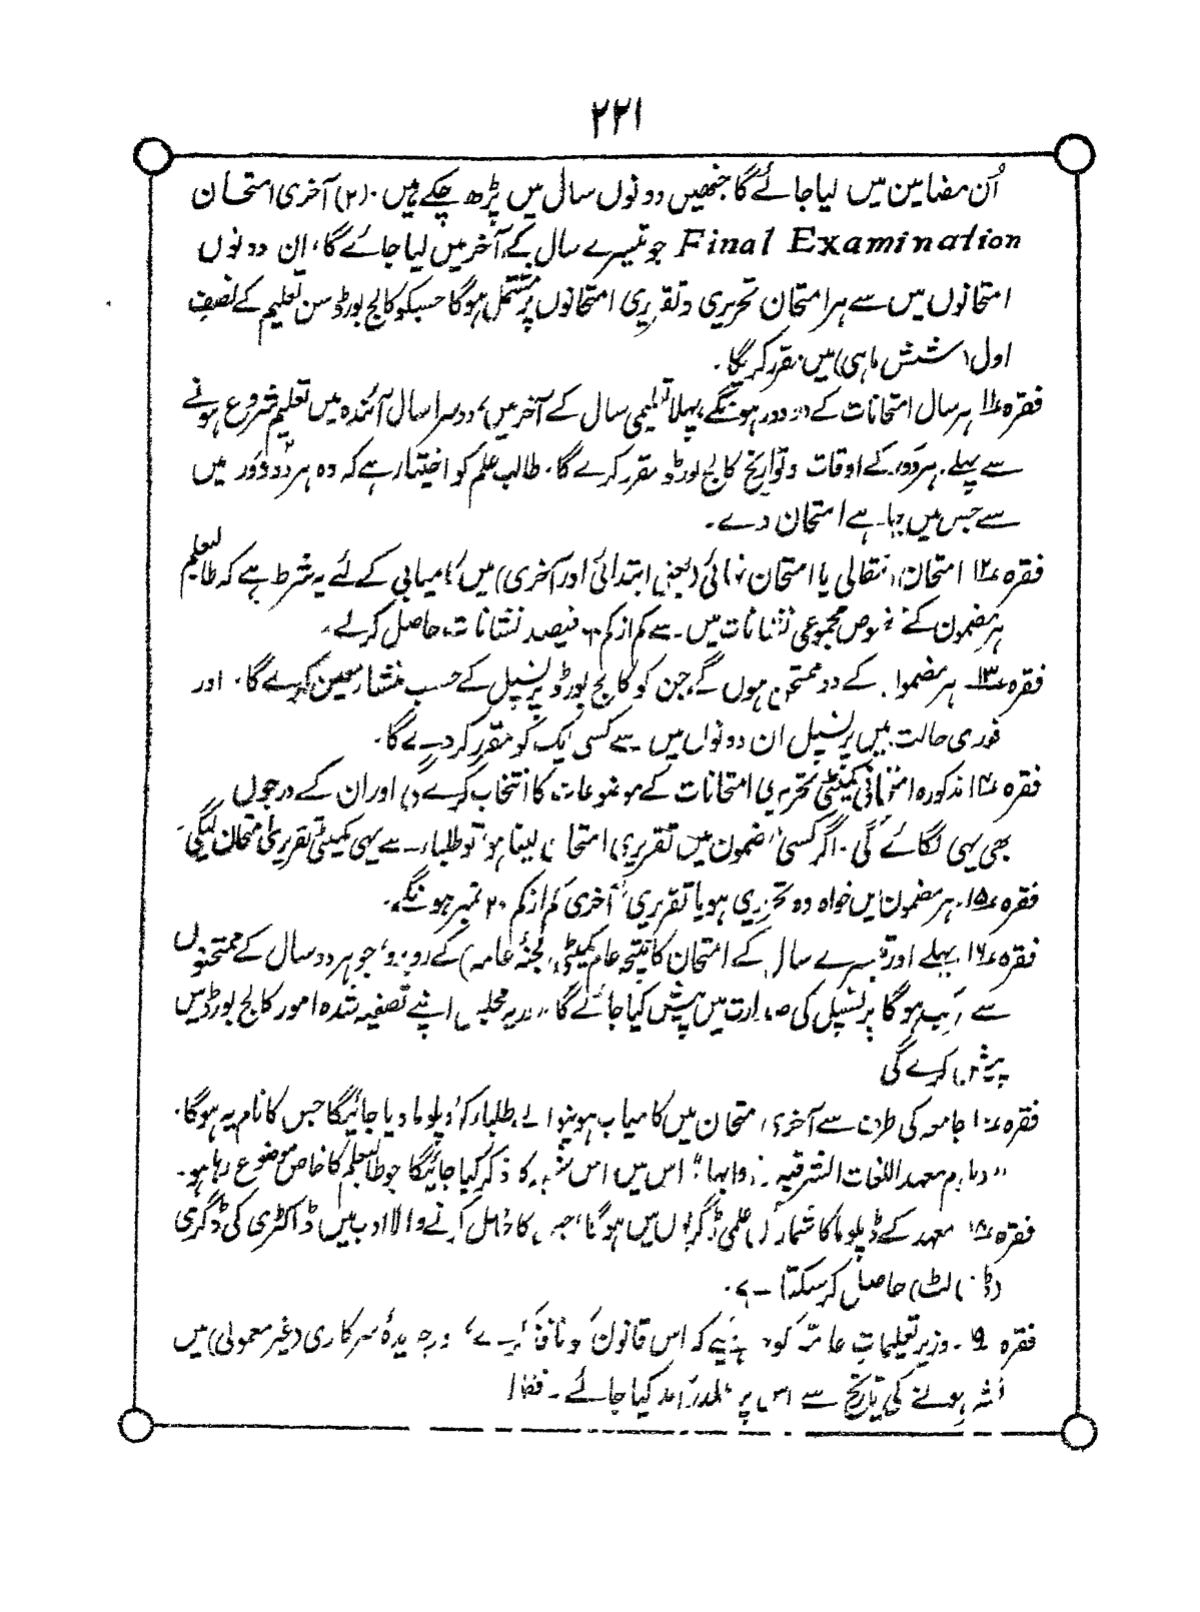 ۲۲۱
اُن مضامین میں لیا جائے گا جنھیں دونوں سال میں پڑھ چکے ہیں ۔ (۲) آخری امتحان
Final Examination جو تیسرے سال کے آخر میں لیا جائے گا، ان دونوں
امتحانوں میں سے ہر امتحان تحریری و تقریری امتحانوں پر مشتمل ہوگا جسکو کالج بورڈ سن تعلیم کے نصف
اول (شش ماہی) میں مقرر کریگا ۔
فقرہ ۱۱ ہر سال امتحانات کے دو دور ہونگے، پہلا تعلیمی سال کے آخر میں، دوسرا سال آئندہ میں تعلیم شروع ہونے
سے پہلے ۔ ہر دور کے اوقات و تواریخ کالج بورڈ مقرر کرے گا ۔ طالب علم کو اختیار ہے کہ وہ ہر دو دَور میں
سے جس میں چاہے امتحان دے ۔
فقرہ ۱۲ امتحان انتقالی یا امتحان نہائی (یعنی ابتدائی اور آخری) میں کامیابی کے لئے یہ شرط ہے کہ طالبعلم
ہر مضمون کے مخصوص مجموعی نشانات میں سے کم از کم ۶۰ فیصد نشانات حاصل کرلے ۔
فقرہ ۱۳ ہر مضمون کے دو ممتحن ہوں گے، جن کو کالج بورڈ پرنسپل کے حسب منشار معین کرے گا ۔ اور
فوری حالت میں پرنسپل ان دونوں میں سے کسی ایک کو مقرر کردے گا ۔
فقرہ ۱۴ مذکورہ امتحانی کمیٹی تحریری امتحانات کے موضوعات کا انتخاب کرے گی اور ان کے درجوں
بھی یہی لگائے گی ۔ اگر کسی مضمون میں تقریری امتحان لینا ہو، تو طلبار سے یہی کمیٹی تقریری امتحان لیگی
فقرہ ۱۵ ۔ ہر مضمون میں خواہ وہ تحریری ہو یا تقریری آخری کم از کم ۲۰ نمبر ہونگے ۔
فقرہ ۱۶ ۔ پہلے اور تیسرے سال کے امتحان کا نتیجہ عام کمیٹی (لجنۂ عامہ) کے روبرو، جو ہر دو سال کے ممتحنوں
سے مرکب ہوگا پرنسپل کی صدارت میں پیش کیا جائے گا، اور یہ مجلس اپنے تصفیہ شدہ امور کالج بورڈ میں
پیش کرے گی
فقرہ ۱۷ جامعہ کی طرف سے آخری امتحان میں کامیاب ہونیوالے طلبار کو ڈپلوما دیا جائیگا جس کا نام یہ ہوگا ۔
"دبلوم معہد اللغات الشرقیہ وآدابہا" اس میں اس شعبہ کا ذکر کیا جائیگا جو طالبعلم کا خاص موضوع رہا ہو ۔
فقرہ ۱۸ معہد کے ڈپلوما کا شمار ان علمی ڈگریوں میں ہوگا، جس کا حاصل کرنے والا ادب میں ڈاکٹری کی ڈگری
(ڈی لٹ) حاصل کرسکتا ہے ۔
فقرہ ۱۹ ۔ وزیر تعلیمات عامّہ کو چاہئیے کہ اس قانون کو نافذ کرے، اور جریدۂ سرکاری (غیر معمولی) میں
نشر ہونے کی تاریخ سے اس پر عملدرآمد کیا جائے ۔ فقط